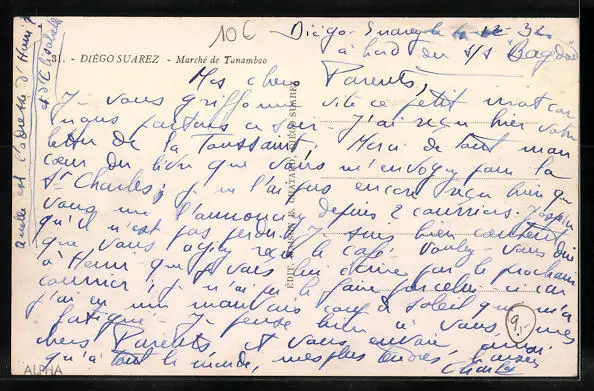 10€
Diégo-Suarez le 12-32
à bord du s/s "Bagdad"
31. - DIÉGO SUAREZ - Marché de Tanambao
Mes chers Parents,
Je vous griffonne vite ce petit mot car
nous partons ce soir. J'ai reçu hier votre
lettre de la Toussaint. Merci de tout mon
cœur du livre que vous m'envoyez pour la
St Charles; je ne l'ai pas encore reçu bien que
vous me l'annonciez depuis 2 courriers. J'espère
qu'il n'est pas perdu. Je suis bien content
que vous ayez reçu le café. Voulez vous dire
à Henri que je vais lui écrire par le prochain
courrier; je n'ai pu le faire par celui ci car
j'ai eu un mauvais coup de soleil qui m'a
fatigué. Je pense bien à vous, mes
chers Parents, et vous envoie, ainsi
qu'à tout le monde, mes plus tendres baisers
Charles
quelle est l'adresse d'Henri
et d'
9.-
ALPHA